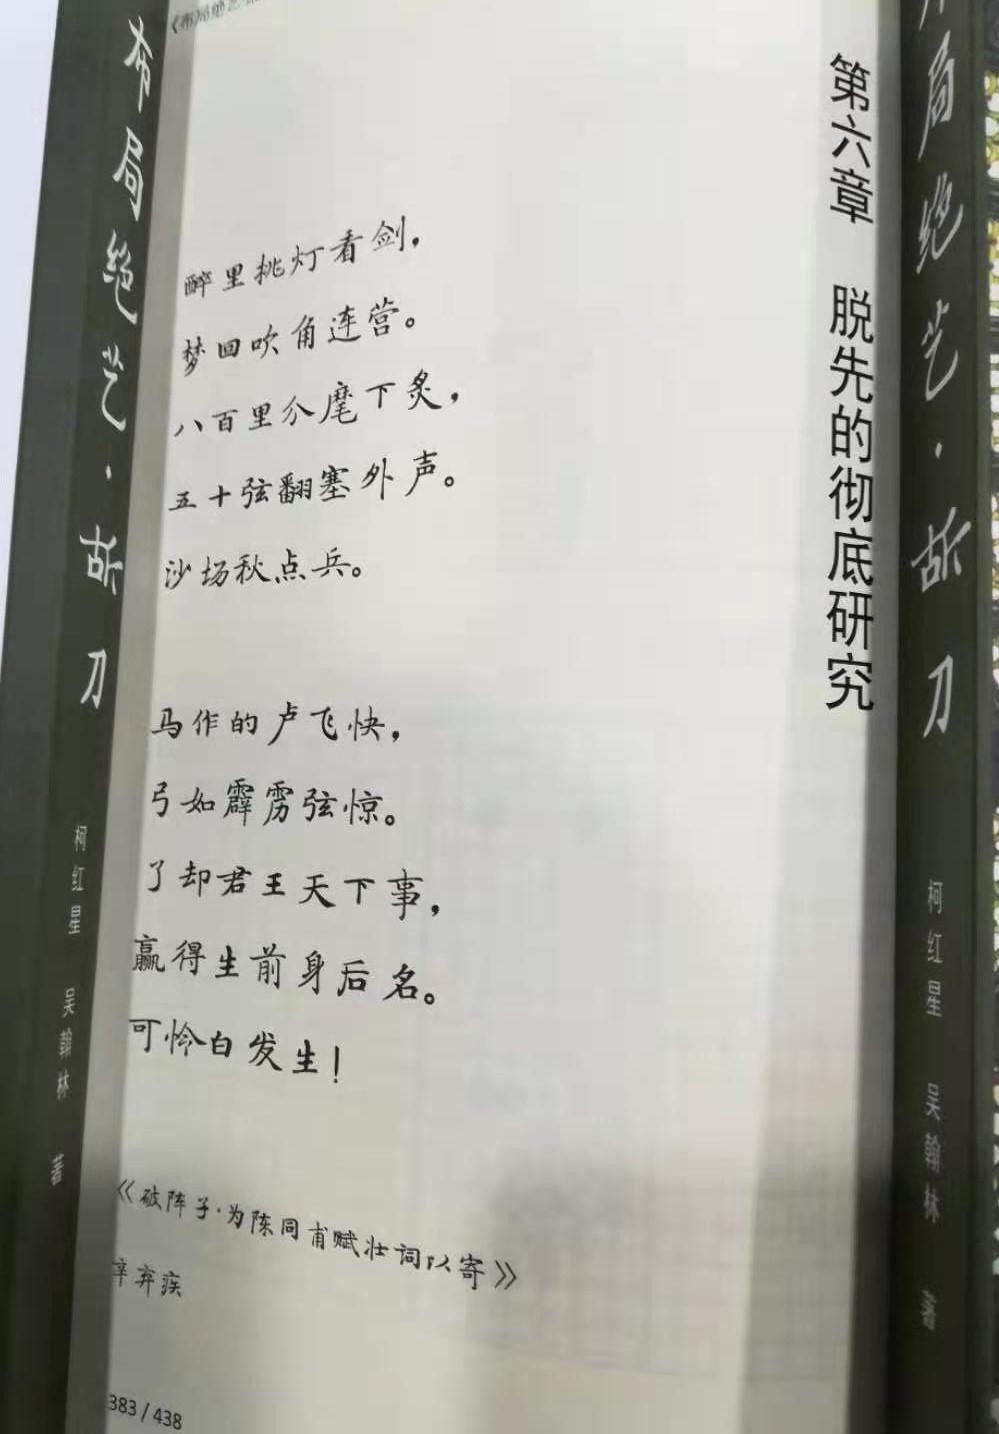 第六章 脱先的彻底研究
醉里挑灯看剑，
梦回吹角连营。
八百里分麾下炙，
五十弦翻塞外声。
沙场秋点兵。
马作的卢飞快，
弓如霹雳弦惊。
了却君王天下事，
赢得生前身后名。
可怜白发生！
《破阵子·为陈同甫赋壮词以寄》
辛弃疾
383 / 438
布局绝艺·
刀
柯红星 吴翰林 著
布局绝艺·
刀
柯红星 吴翰林 著